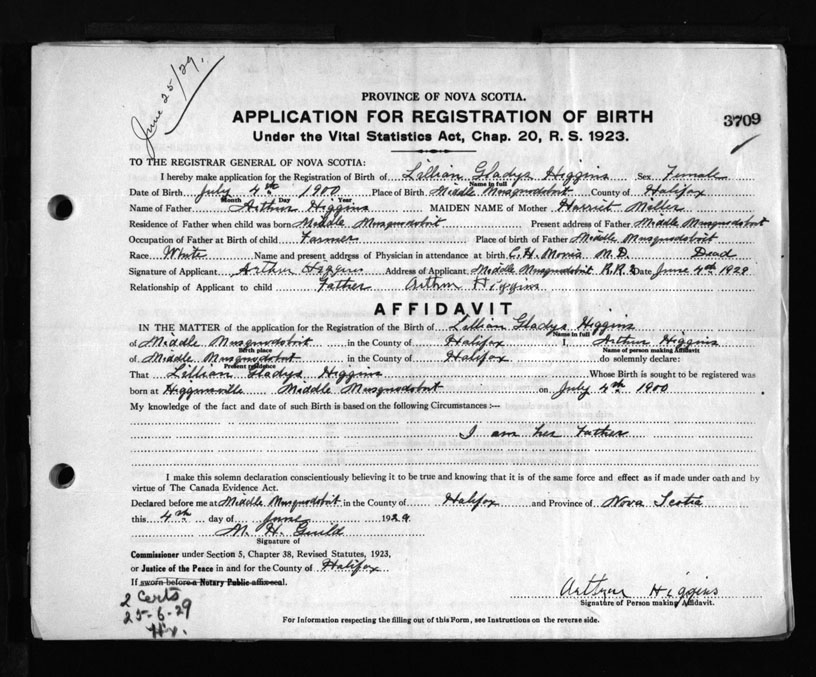 June 25/29.
PROVINCE OF NOVA SCOTIA.
APPLICATION FOR REGISTRATION OF BIRTH
3709
Under the Vital Statistics Act, Chap. 20, R. S. 1923.
TO THE REGISTRAR GENERAL OF NOVA SCOTIA:
I hereby make application for the Registration of Birth of Lillian Gladys Higgins Sex Female
Name in full
Date of Birth July 4th 1900 Place of Birth Middle Musquodoboit County of Halifax
Month Day Year
Name of Father Arthur Higgins MAIDEN NAME of Mother Harriet Miller
Residence of Father when child was born Middle Musquodoboit Present address of Father Middle Musquodoboit
Occupation of Father at Birth of child Farmer Place of birth of Father Middle Musquodoboit
Race White Name and present address of Physician in attendance at birth C. H. Morris M.D. Dead
Signature of Applicant Arthur Higgins Address of Applicant Middle Musquodoboit R.R. Date June 4th 1929
Relationship of Applicant to child Father Arthur Higgins
AFFIDAVIT
IN THE MATTER of the application for the Registration of the Birth of Lillian Gladys Higgins
Name in full
of Middle Musquodoboit in the County of Halifax I, Arthur Higgins
Birth place Name of person making Affidavit
of Middle Musquodoboit in the County of Halifax do solemnly declare:
Present residence
That Lillian Gladys Higgins Whose Birth is sought to be registered was
born at Higginsville Middle Musquodoboit on July 4th 1900
My knowledge of the fact and date of such Birth is based on the following Circumstances :—
I am her Father
I make this solemn declaration conscientiously believing it to be true and knowing that it is of the same force and effect as if made under oath and by
virtue of The Canada Evidence Act.
Declared before me at Middle Musquodoboit in the County of Halifax and Province of Nova Scotia
this 4th day of June 1929
M. H. Guild
Signature of
Commissioner under Section 5, Chapter 38, Revised Statutes, 1923,
or Justice of the Peace in and for the County of Halifax
If sworn before a Notary Public affix seal.
2 Certs
25-6-29
Arthur Higgins
Signature of Person making Affidavit.
For Information respecting the filling out of this Form, see Instructions on the reverse side.